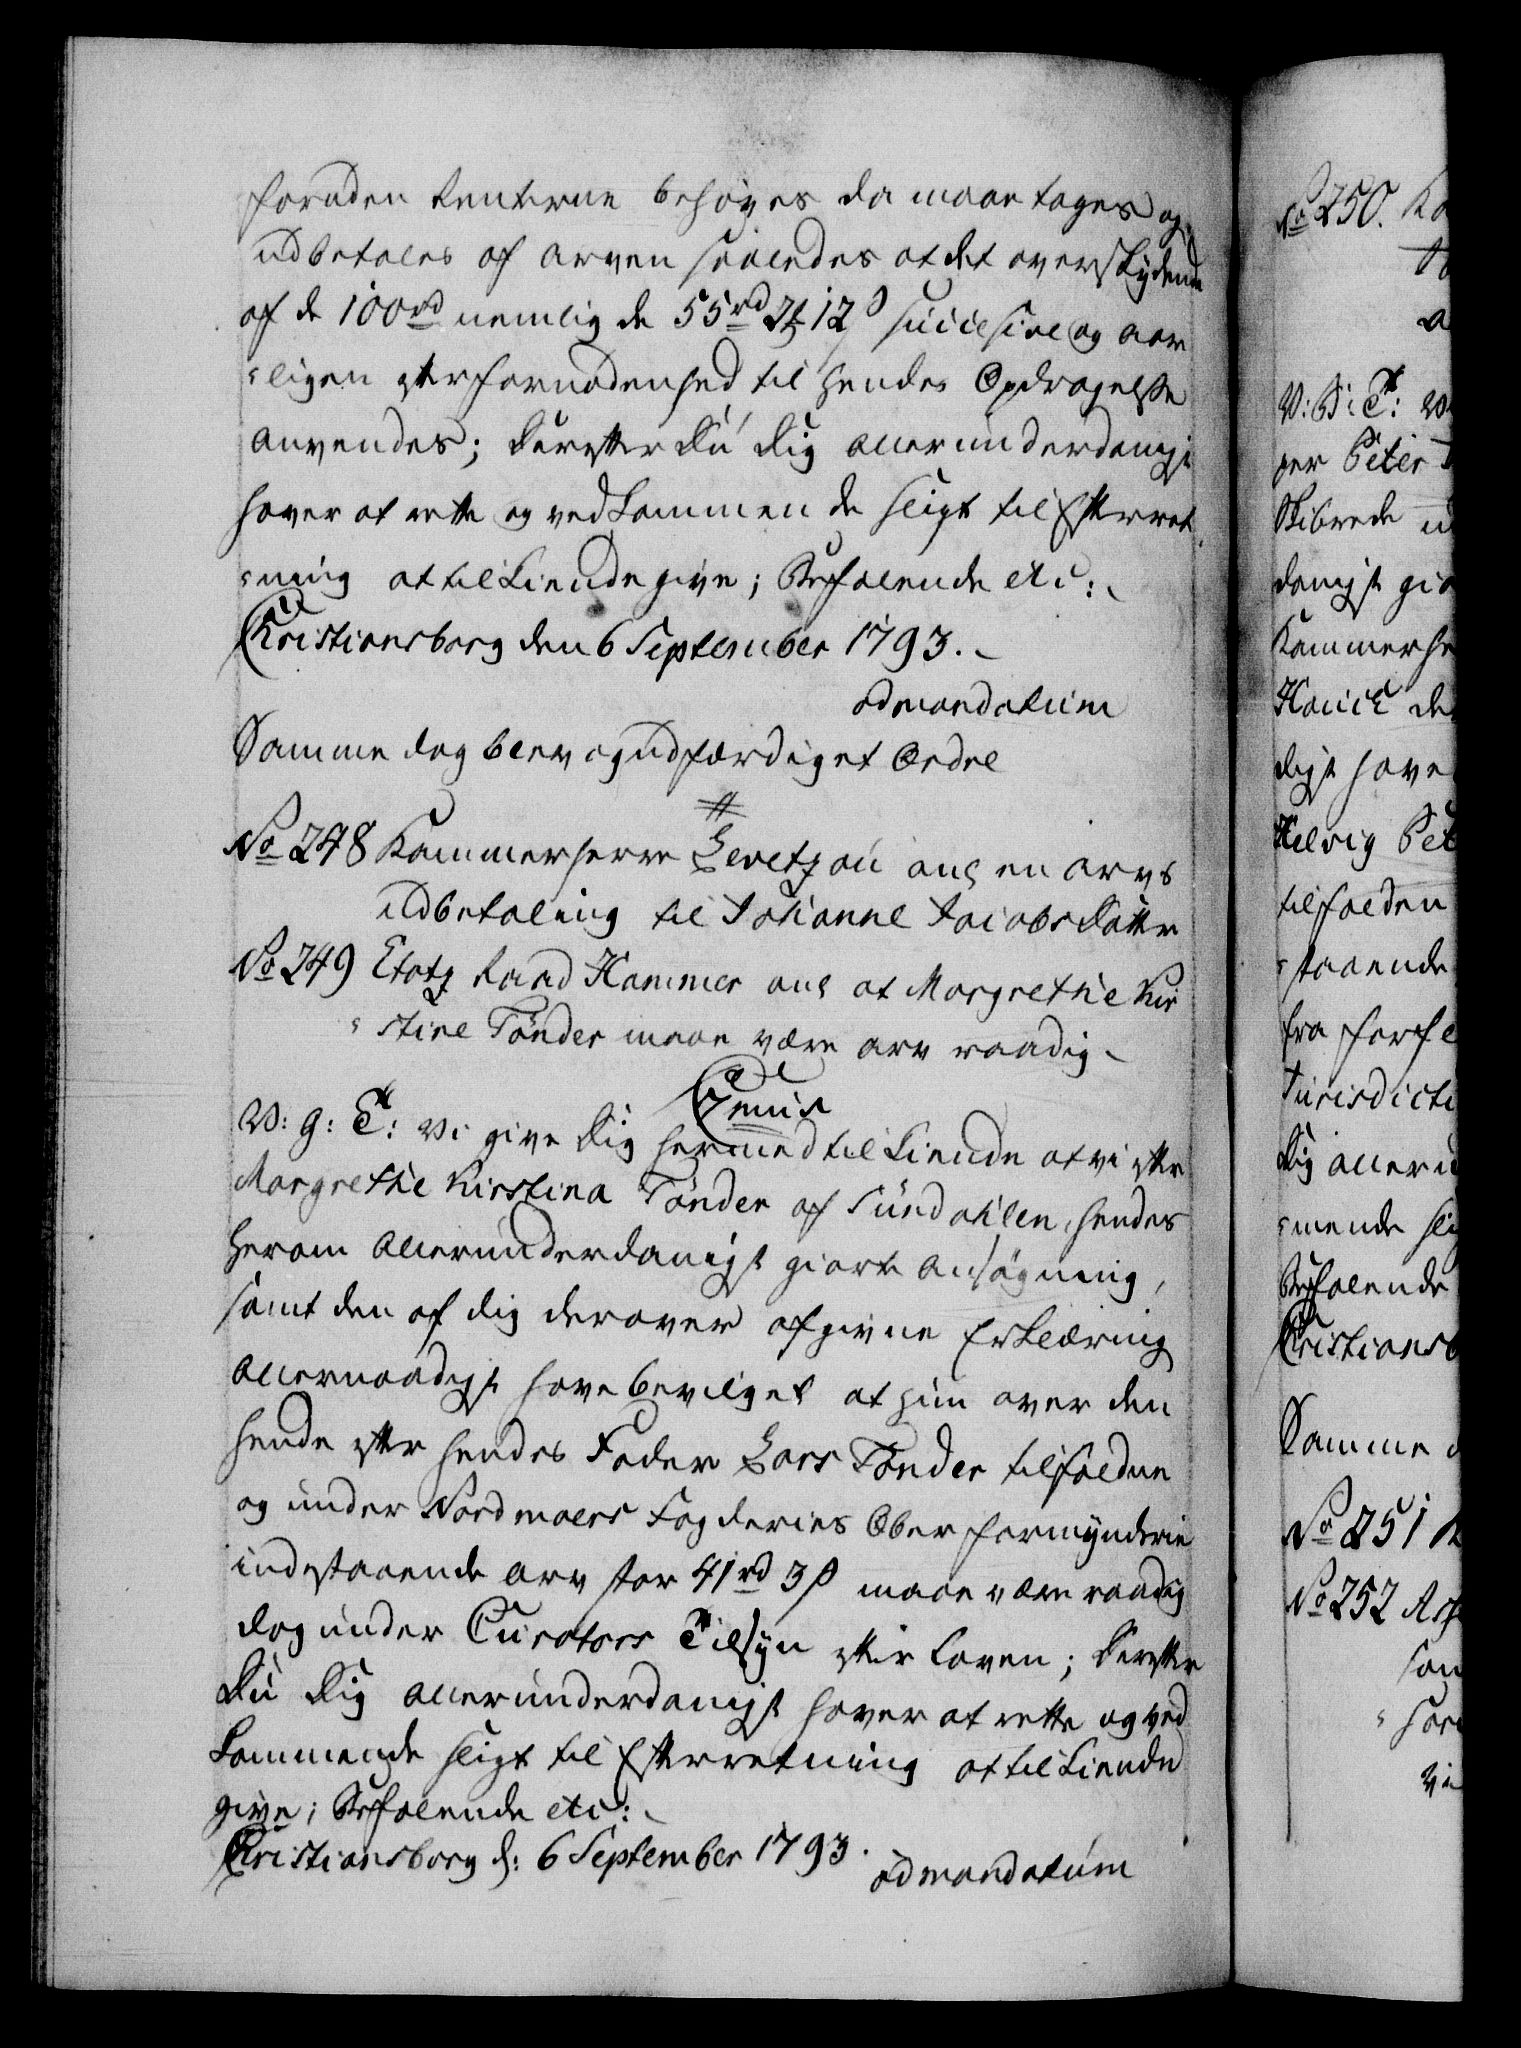 foruden Renterne behøves da maae tages og
udbetales af Arven saaledes at det overskydende
af de 100 rd nemlig de 55 rd 2 ℔ 12 s successive og aar
-ligen efter fornødenhed til hendes Opdragelse
anvendes; Derefter Du Dig allerunderdanigst
haver at rette og vedkommende sligt til Efterret
-ning at tilkiendegive; Befalende etc:
Christiansborg den 6 September 1793.
ad mandatum
Samme dag blev og udfærdiget Ordre
No 248 Kammerherre Levetzau ang en Arvs
udbetaling til Johanne Jacobsdatter
No 249 Etatz Raad Hammer ang at Margrethe Kir
-stine Tønder maae være arv raadig
Genus
V: G: T: Vi give Dig hermed tilkiende at vi efter
Margrethe Kirstina Tønder af Sundahlen, hendes
herom allerunderdanigst giorte Ansøgning,
samt den af dig derover afgivne Erklæring
allernaadigst have bevilget at hun over den
hende efter hendes Fader Lars Tønder tilfaldne
og under Nordmøers Fogderies Oberformynderie
indestaaende Arv stor 41 rd 3 s maae være raadig
dog under Curators Tilsyn efter Loven; Derefter
Du Dig allerunderdanigst haver at rette og ved
kommende sligt til Efterretning at tilkiende
give; Befalende etc:
Christiansborg d: 6 September 1793.
ad mandatum
No 250. Ka
V: G: T: V
per Peter
Skibrede
danigst gio
Kammerhe
Hauch de
digst have
Helvig Pet
tilfalden
-staaende
fra
Jurisdicti
Dig alleru
-mende slig
Befalende
Christiansb
Samme d
No 251
No 252